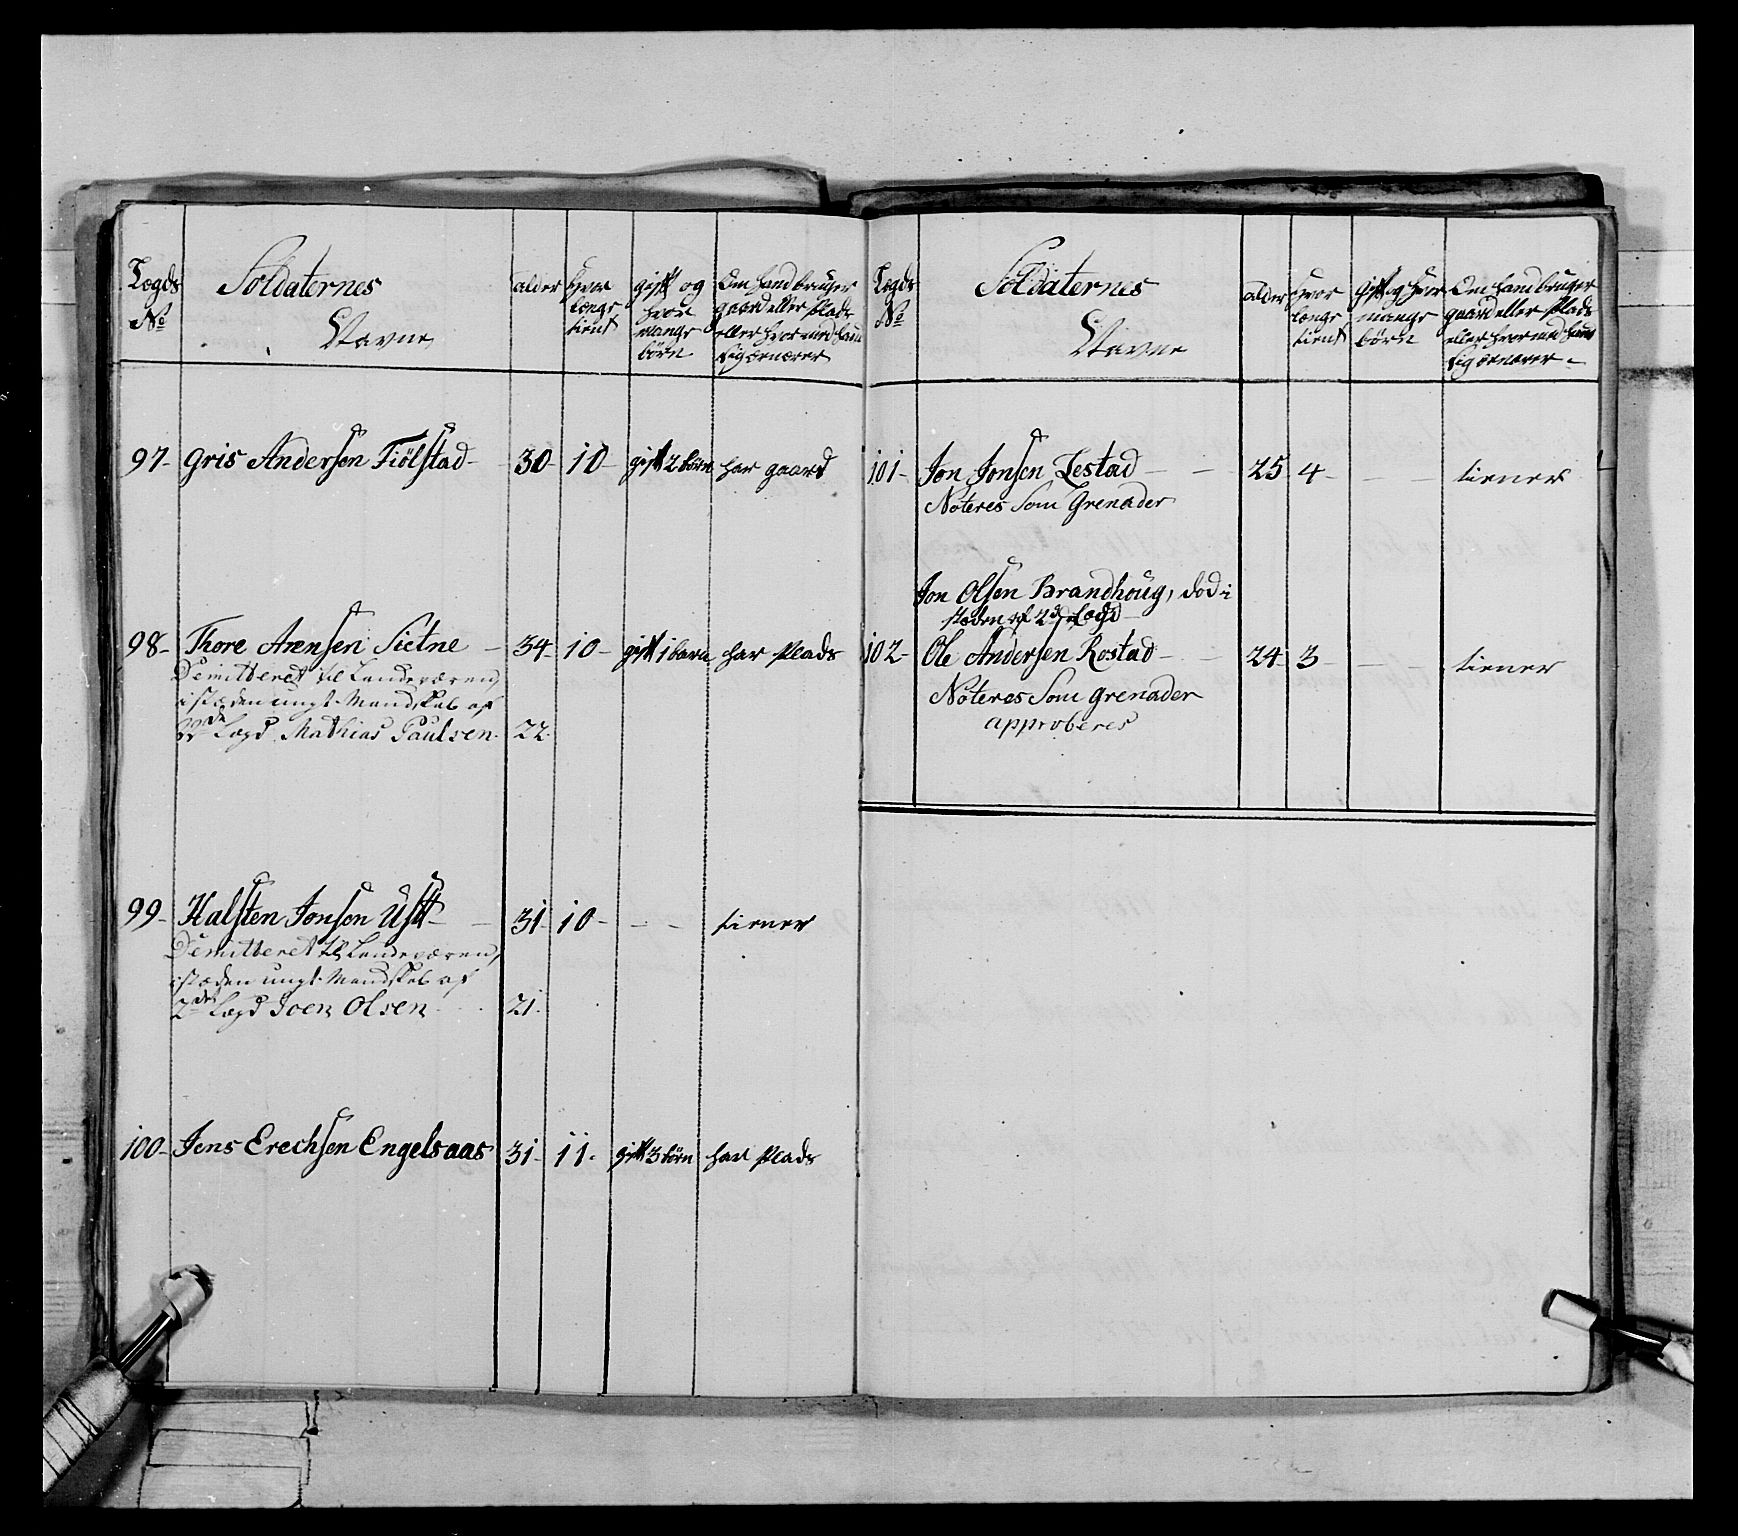 Legds No
Soldaternes Navne
alder
hvor længe tient
gift og hvor mange börn
Om hand bruger gaard eller Plads eller hvormed hand sig ernærer
97- Gris Andersen Fiölstad - 30- 10- gift 2 börn har gaard
98- Thore Arensen Sietne - 34- 10- gift 1 barn har Plads
Demitteret til Landeværen,
i stæden ungt Mandskab af
Lægd Mathias Paulsen. 22.
99- Halsten Jonsen Ust - 31- 10- - - tiener
Demitteret til Landeværen,
i stæden ungt Mandskab af
2de Lægd Joen Olsen 21.
100- Jens Erechsen Engelsaas 31- 11. gift 3 börn har Plads
Legds No
Soldaternes Navne
alder
hvor længe tient
gift og hvor mange börn
Om hand bruger gaard eller Plads eller hvormed hand sig ernærer -
101- Jon Jonsen Lestad - - 25 4- - - tiener
Noteres Som Grenader
Jon Olsen Brandhoug, död i
stæden af 2de Lægd
102- Ole Andersen Rostad - - 24 3- - - tiener
Noteres Som grenader
approberes